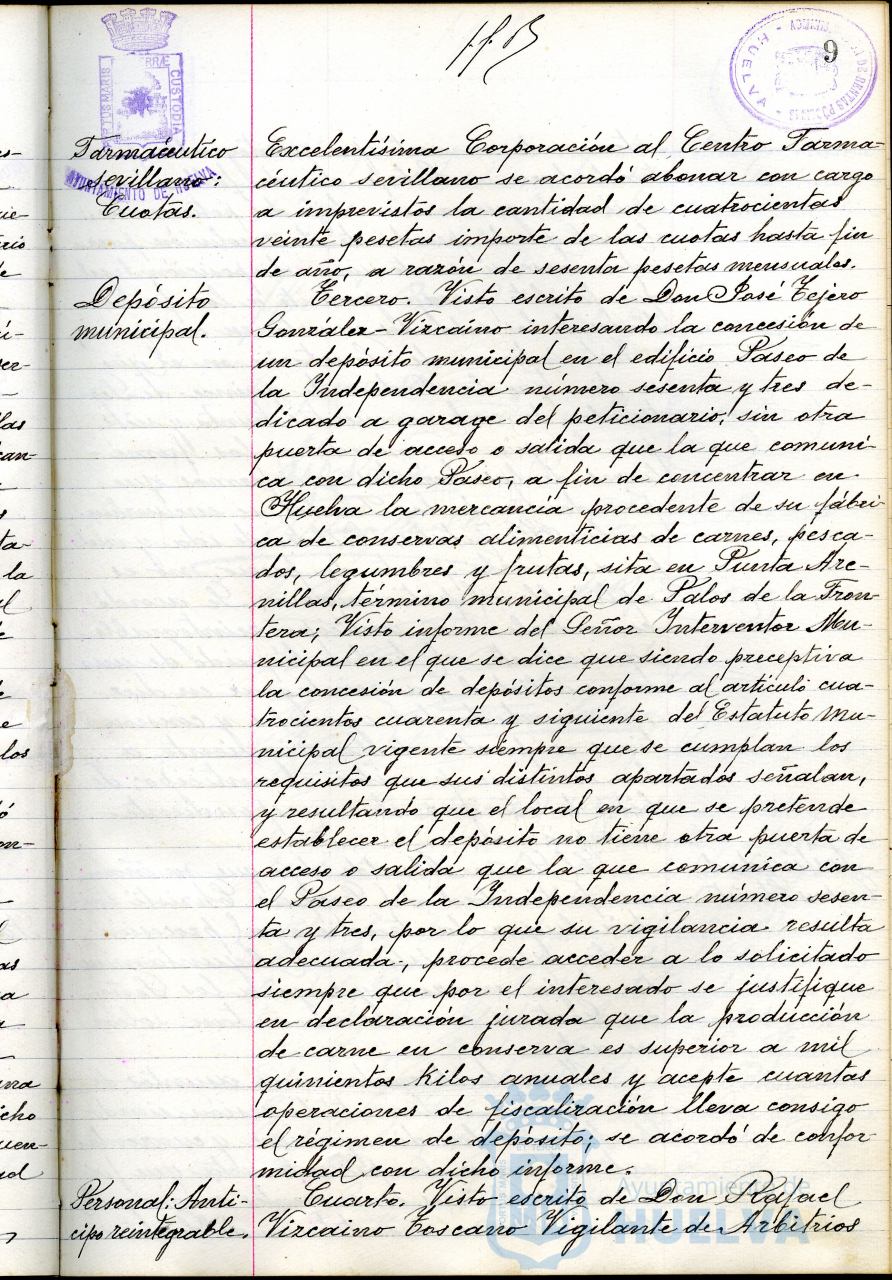 9
PORTUS MARIS
ET TERRÆ CUSTODIA
AYUNTAMIENTO DE HUELVA
HUELVA
Farmacéutico
sevillano:
Cuotas.
Excelentísima Corporación al Centro Farma-
céutico sevillano se acordó abonar con cargo
a imprevistos la cantidad de cuatrocientas
veinte pesetas importe de las cuotas hasta fin
de año, a razón de sesenta pesetas mensuales.
Depósito
municipal.
Tercero. Visto escrito de Don José Tejero
González-Vizcaino interesando la concesión de
un depósito municipal en el edificio Paseo de
la Independencia número sesenta y tres de-
dicado a garage del peticionario, sin otra
puerta de acceso o salida que la que comuni-
ca con dicho Paseo, a fin de concentrar en
Huelva la mercancía procedente de su fábri-
ca de conservas alimenticias de carnes, pesca-
dos, legumbres y frutas, sita en Punta Are-
nillas, término municipal de Palos de la Fron-
tera; Visto informe del Señor Interventor Mu-
nicipal en el que se dice que siendo preceptiva
la concesión de depósitos conforme al artículo cua-
trocientos cuarenta y siguiente del Estatuto Mu-
nicipal vigente siempre que se cumplan los
requisitos que sus distintos apartados señalan,
y resultando que el local en que se pretende
establecer el depósito no tiene otra puerta de
acceso o salida que la que comunica con
el Paseo de la Independencia número sesen-
ta y tres, por lo que su vigilancia resulta
adecuada, procede acceder a lo solicitado
siempre que por el interesado se justifique
en declaración jurada que la producción
de carne en conserva es superior a mil
quinientos kilos anuales y acepte cuantas
operaciones de fiscalización lleva consigo
el régimen de depósito; se acordó de confor-
midad con dicho informe.
Personal: Anti-
cipo reintegrable.
Cuarto. Visto escrito de Don Rafael
Vizcaino Toscano Vigilante de Arbitrios
Ayuntamiento de
HUELVA